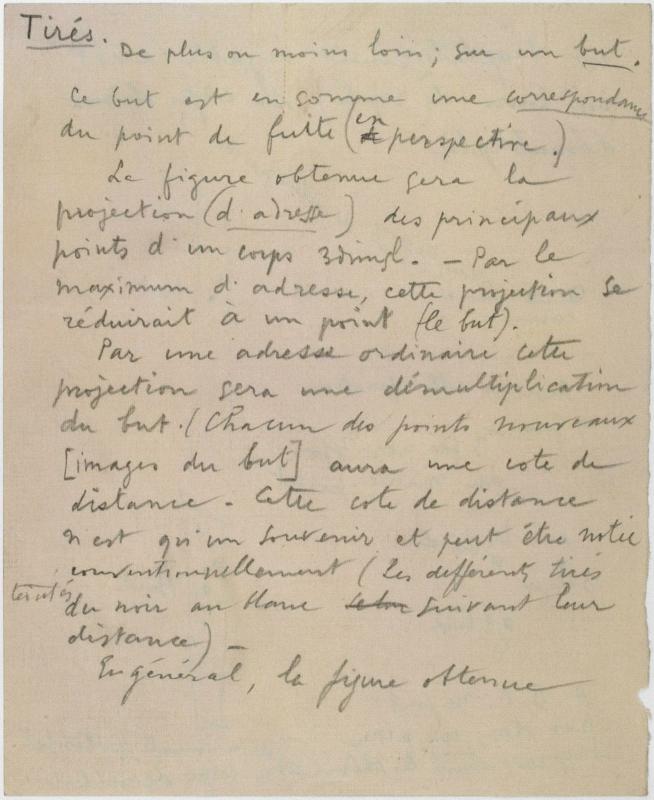 Tirés.
De plus ou moins loin ; sur un but.
Ce but est en somme une correspondance
du point de fuite (en perspective.)
La figure obtenue sera la
projection (d'adresse) des principaux
points d'un corps 3dimsl. — Par le
maximum d'adresse, cette projection se
réduirait à un point (le but).
Par une adresse ordinaire cette
projection sera une démultiplication
du but. (Chacun des points nouveaux
[images du but] aura une cote de
distance – Cette cote de distance
n'est qu'un souvenir et peut être notée
conventionnellement (Les différents tirés
teintés du noir au blanc selon suivant leur
distance) –
En général, la figure obtenue